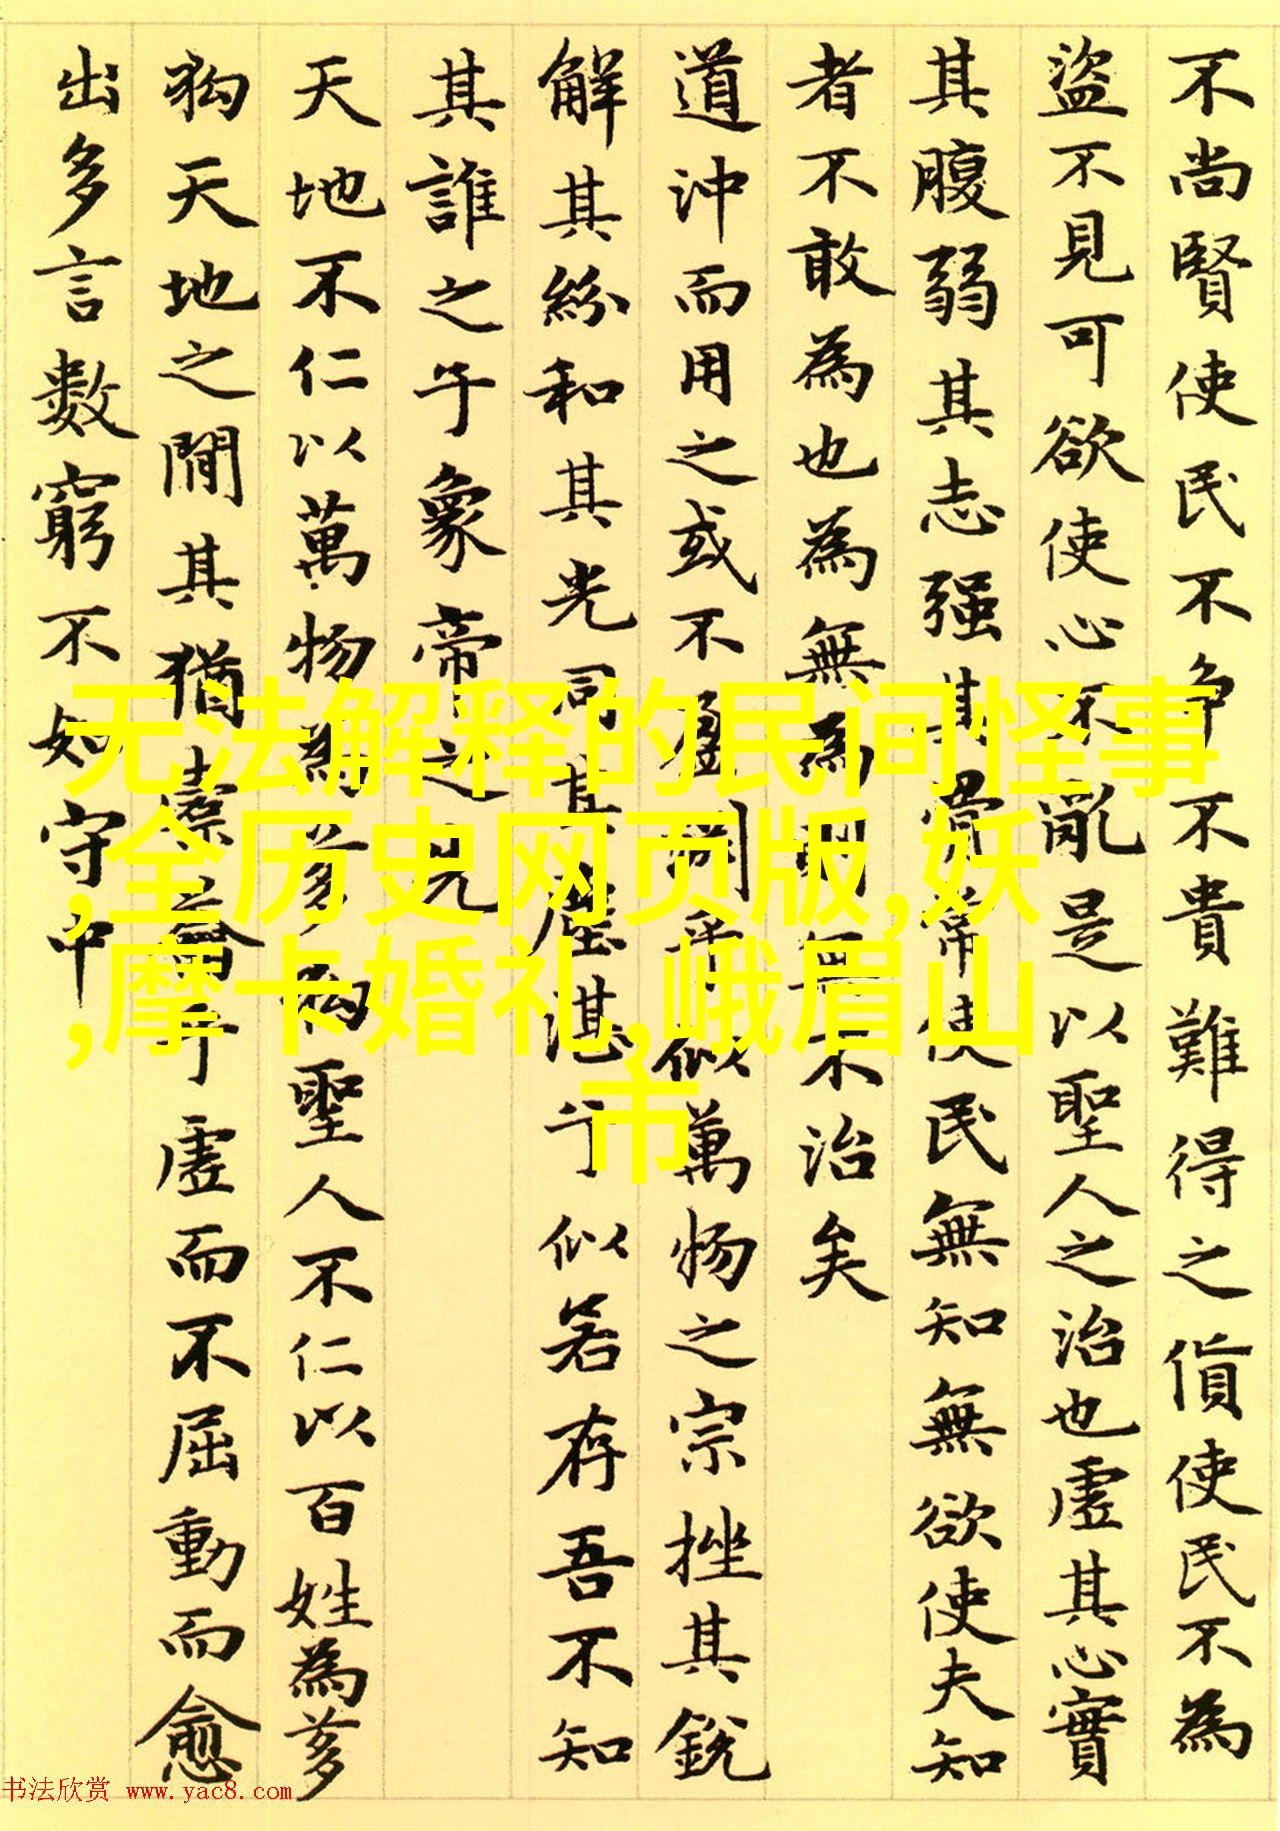 不尚賢使民不争不貴難得之貨使民不為
盜不見可欲使心不亂是以聖人之治也虛其心實
其腹弱其志强其骨常使民無知無欲使夫知
者不敢為也為無為則無不治矣
道沖而用之或不盈淵乎似萬物之宗挫其銳
解其紛和其光同其塵湛兮似若存吾不知
其誰之子象帝之先
天地不仁以萬物為芻狗聖人不仁以百姓為芻
狗天地之間其猶橐籥乎虛而不屈動而愈
出多言數窮不如守中
无法解释的民间怪事
,全历史网页版,妖
,摩卡婚礼,峨眉山
市
书法欣赏 www.yac8.com